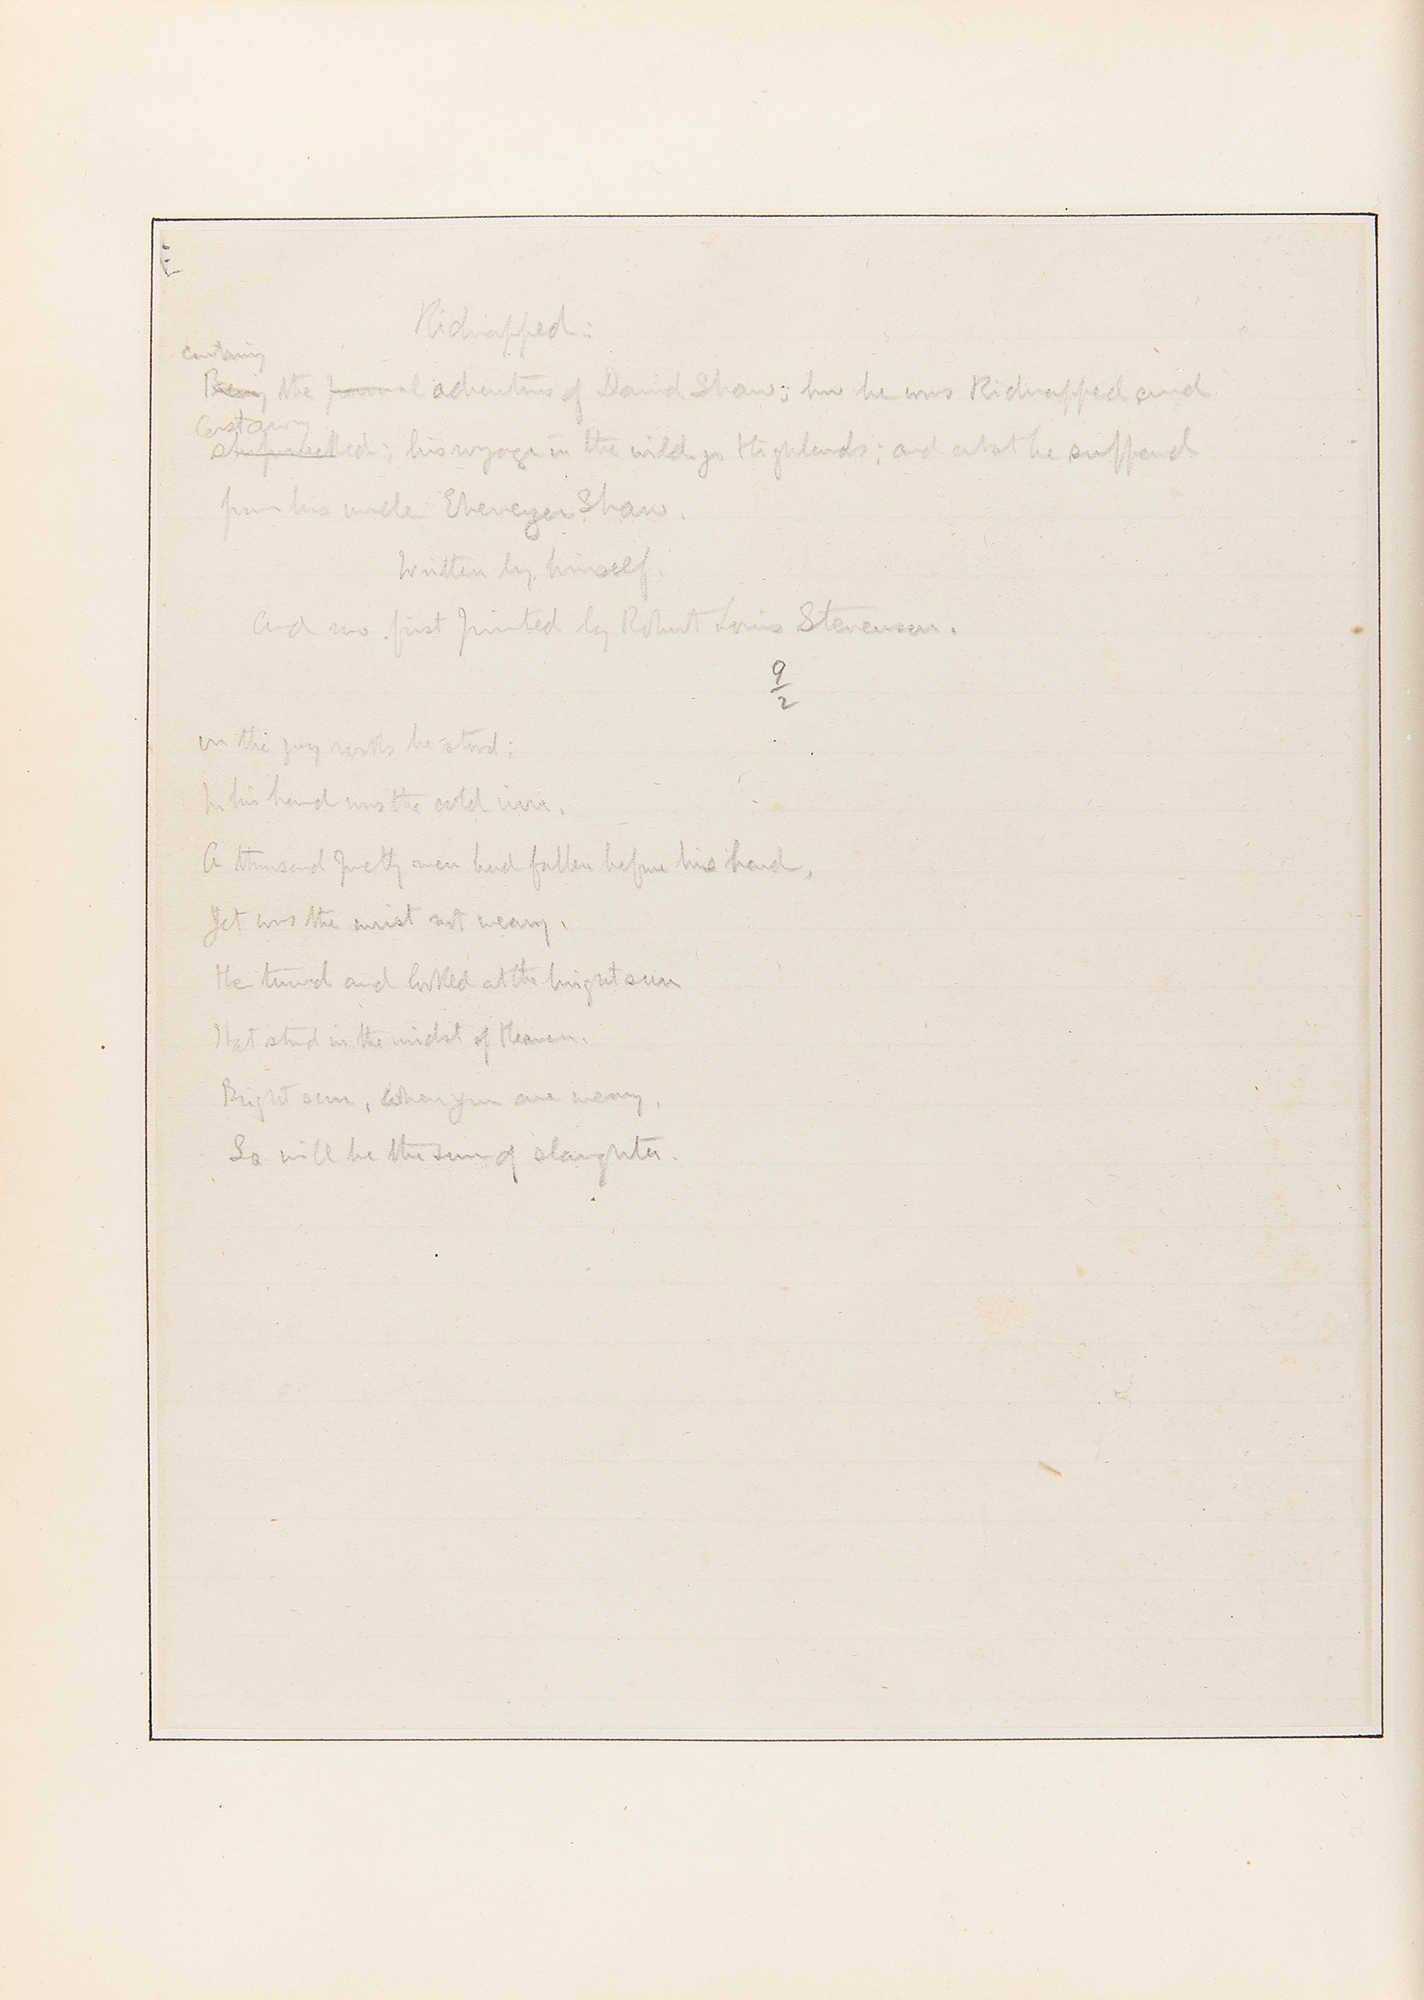 Kidnapped:
containing
Being the journal adventures of David Shaw; how he was Kidnapped and
Castaway
shipwrecked; his voyage in the wild Highlands; and what he suffered
from his uncle Ebenezer Shaw.
Written by himself.
and now first printed by Robert Louis Stevenson.
9
2
on the grey rocks he stood;
In his hand was the cold iron.
A thousand pretty men had fallen before his hand,
Yet was the wrist not weary.
He turned and looked at the bright sun
That stood in the midst of Heaven.
Bright sun, when you are weary,
So will be the sun of slaughter.